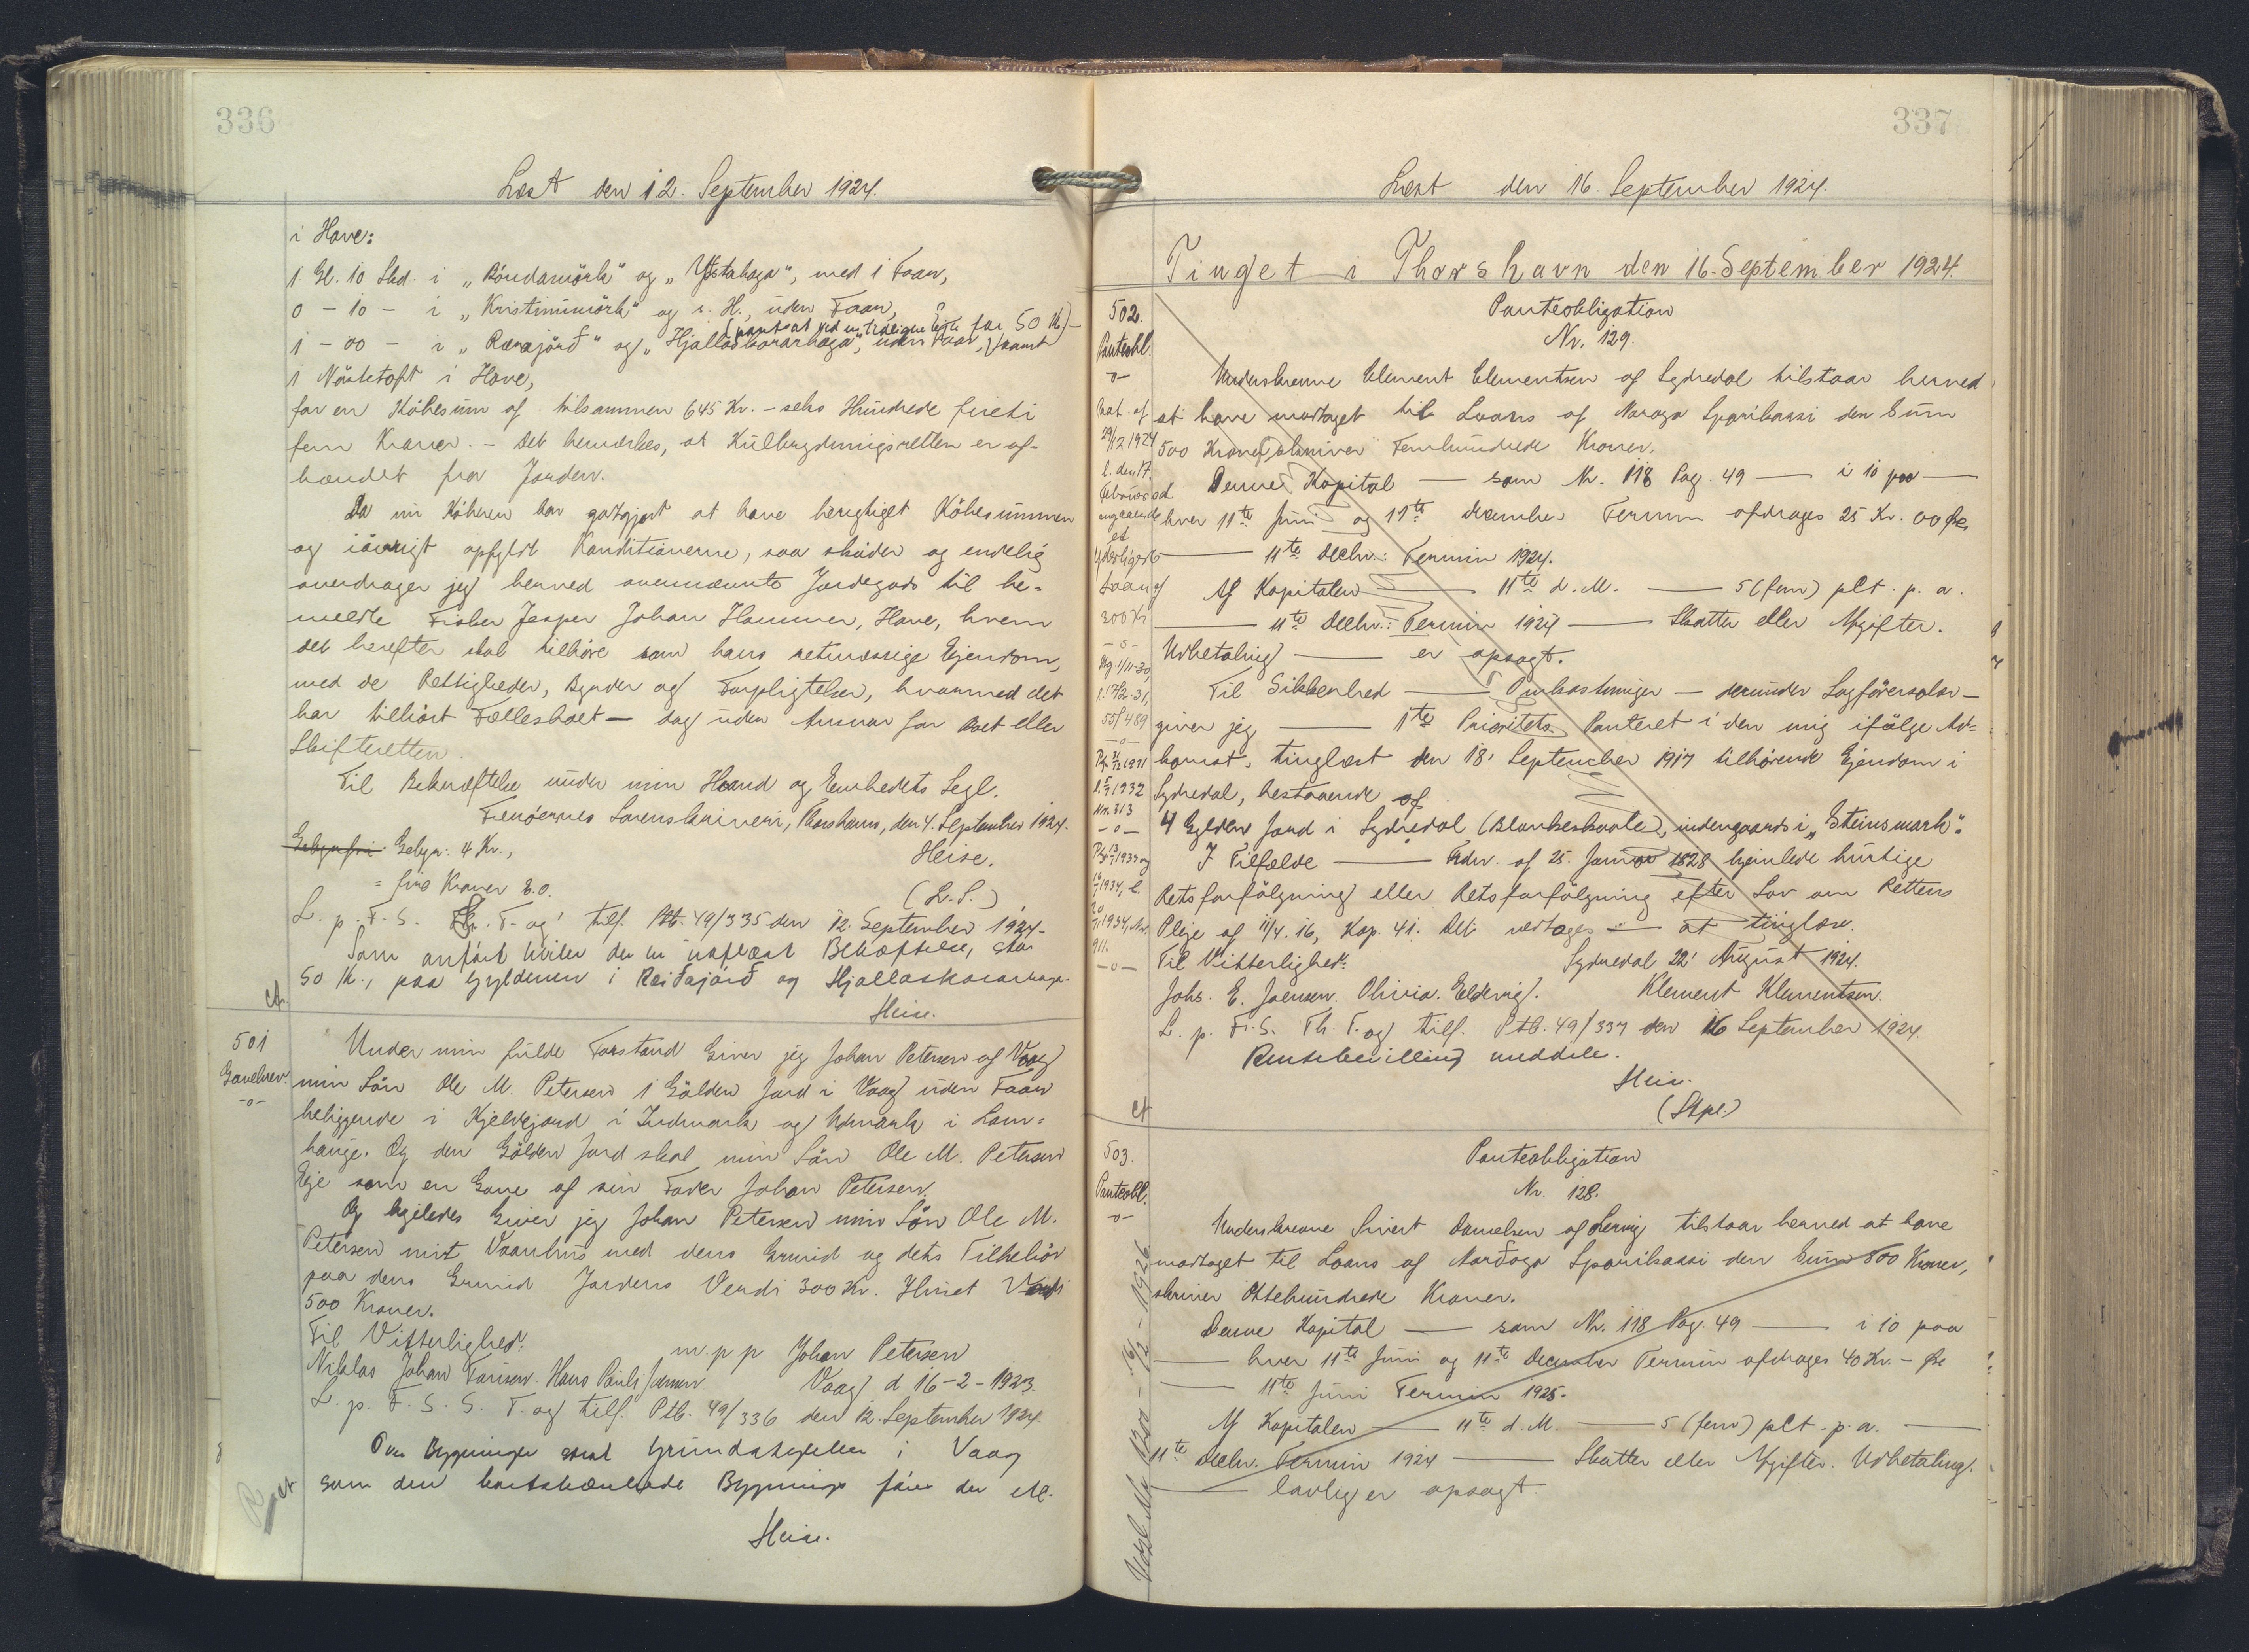 336
Læst den 12. September 1924.
i Have:
1 Gl. 10 Skd. i „Bóndamörk" og „Ystahaga", med i Faan,
0 - 10 - i „Kristinmörk" og s. H., uden Faan,
(pantsat ved for 50 Kr) -
1 - 00 - i og „Hjallaskorarhaga", uden Faar, samt
1 Nöstetoft i Have,
for en Köbesum af tilsammen 645 Kr. - seks Hundrede fireti
fem Kroner. - Det bemærkes, at Kulbrydningsretten er af-
hændet fra Jorden.
Da nu Köberen har godtgjort at have berigtiget Köbesummen
og iövrigt opfyldt Konditionerne, saa sköder og endelig
overdrager jeg herved ovennævnte Jordegods til be-
meldte Fisker Jesper Johan Hammer, Have, hvem
det herefter skal tilhöre som hans retmæssige Ejendom,
med de Rettigheder, Byrder og Forpligtelser, hvormed det
har tilhört Fællesboet - dog uden Ansvar for Boet eller
Skifteretten.
Til Bekræftelse under min Haand og Embedets Segl.
Færöernes Sorenskriveri, Thorshavn, den 4. September 1924.
Gebyrfri Gebyr: 4 Kr., Heise.
= fire Kroner E.O. (L.S.)
L. p. F. S. Th. T. og tilf. Ptb. 49/335 den 12. September 1924 -
Som anfört hviler der en uaflæst Behæftelse, stor
50 Kr., paa Gyldenen i og Hjallaskorarhaga.
ct Heise.
501
Gavebrev.
-o-
Under min fulde Forstand Giver jeg Johan Petersen af Vaag
min Sön Ole M. Petersen 1 Gölden Jord i Vaag uden Faan
beliggende i Kjeldejord i Indmark og Udmark i Lom=
hauge. Og den Gölden Jord skal min Sön Ole M. Petersen
Eje som en Gave af sin Fader Johan Petersen.
Og ligeledes Giver jeg Johan Petersen min Sön Ole M.
Petersen mit Vaanhus med dens Grund og dets Tilbehör
paa dens Grund Jordens Verdi 300 Kr. Huset Verdi
500 Kroner.
Til Vitterlighed:
m. p p Johan Petersen
Niklas Johan Hans Pauli
Vaag d 16-2-1923.
L. p. F. S. S. T. og tilf. Ptb. 49/336 den 12. September 1924.
Bygninger samt Grundstykke i Vaag
som den bortskænkede Bygning
ct
Heise.
337
Læst den 16. September 1924.
Tinget i Thorshavn den 16. September 1924.
502.
Panteobl.
-o-
Panteobligation
Nr. 129.
Underskrevne Clement Clementsen af Sydredal tilstaar herved
at have modtaget til Laans af Noroya Sparikassi den Sum
500 Kroner skriver Femhundrede Kroner.
Denne Kapital — som Nr. 118 Pag. 49 — i 10 paa —
hver 11te Juni og 11te december Termin afdrages 25 Kr. 00 Øre
— 11te Decbr.: Termin 1924.
Af Kapitalen — 11te d. M. — 5 (fem) pCt. p. a.
— 11te Decbr.: Termin 1924 — Skatter eller Afgifter.
Udbetaling — er opsagt.
Til Sikkerhed — Omkostninger — derunder Sagförersalær —
giver jeg — 1te Prioritets Panteret i den mig ifölge Ad-
komst, tinglæst den 18' September 1917 tilhörende Ejendom i
Sydredal, bestaaende af
4 Gylden Jord i Sydredal (Blankeskaale), indengaards i „Steinsmark".
I Tilfælde — Frdn. af 25. Januar 1828 hjemlede hurtige
Retsforfölgning eller Retsforfölgning efter Lov om Rettens
Pleje af 11/4. 16, Kap. 41. Det vedtages — at tinglæse.
Til Vitterlighed: Sydredal 22' August 1924.
Johs. E. Joensen. Olivia. Eldevig. Klement Klementsen.
L. p. F. S. Th. T. og tilf. Ptb. 49/337 den 16 September 1924.
Rentebevilling meddeles.
Heise.
(Stpl.)
ct
29/12 1924
l. den 17.
Februar
angaaende
et
yderligere
Laan af
300 Kr
-o-
l. 17/2-31,
50/489
-o-
Nr. 313
-o-
911.
-o-
503.
Panteobl.
-o-
Panteobligation
Nr. 128.
Underskrevne Sivert Danielsen af Lervig tilstaar herved at have
modtaget til Laans af Nordoya Sparikassi den Sum 800 Kroner,
skriver Ottehundrede Kroner.
Denne Kapital — som Nr. 118 Pag. 49 — i 10 paa
— hver 11te Juni og 11te december Termin afdrages 40 Kr. - Øre
— 11te Juni Termin 1925.
Af Kapitalen — 11te d. M. — 5 (fem) pCt. p. a. —
11te Decbr. Termin 1924 — Skatter eller Afgifter. Udbetaling.
— lovlig er opsagt.